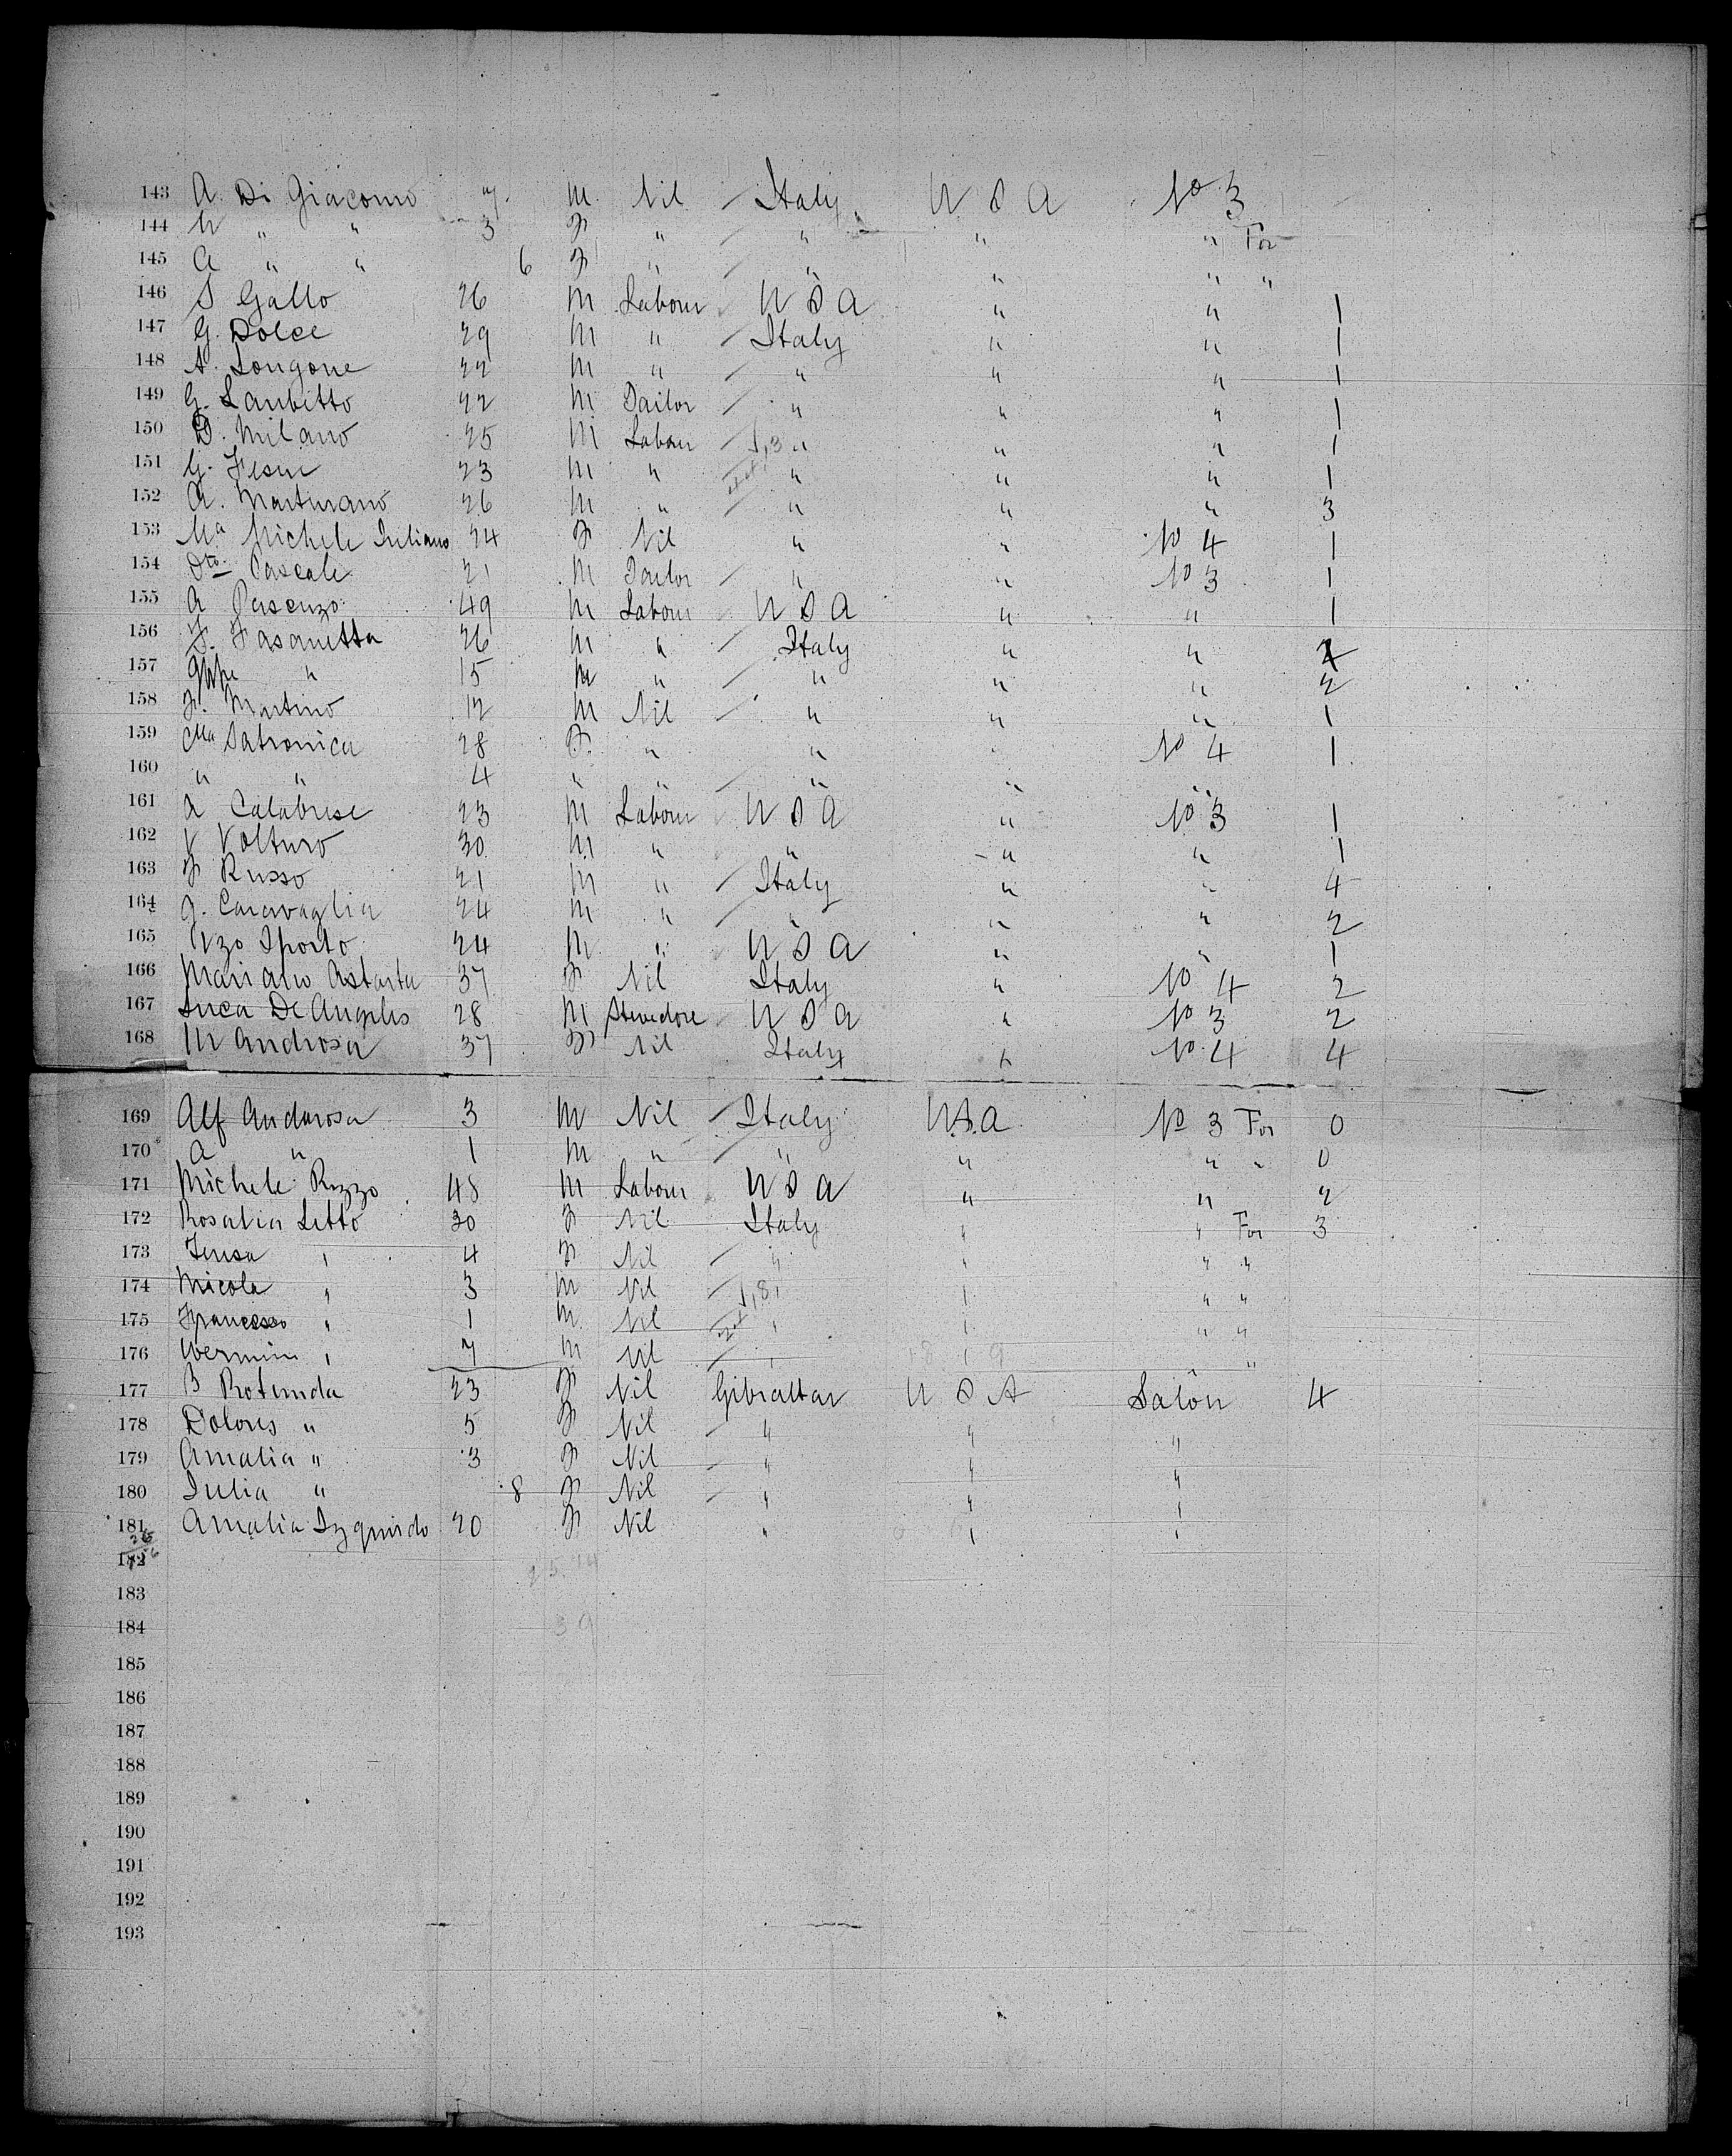 143 A. Di Giacomo 7 M. Nil Italy U S A No 3
144 " " 3 F " " " " For
145 A " " 6 F " " " " "
146 S Gallo 26 M Labour U S A " " 1
147 G. Dolce 29 M " Italy " " 1
148 A. Longone 22 M " " " " 1
149 G. Laubitto 22 M Tailor " " " 1
150 D. Milano 25 M Labour " " " 1
151 G. 23 M " " " " 1
152 A. Marturano 26 M " " " " 3
153 Ma Michele Iuliano 24 F Nil " " No 4 1
154 Dto Pascale 21 M Tailor " " No 3 1
155 A 49 M Labour U S A " " 1
156 F. Fasanetta 26 M " Italy " "
157 Gppe " 15 M " " " " 2
158 F. Martino 12 M Nil " " " 1
159 Ma Satronica 28 F. " " " No 4 1
160 " " 4 " " " " "
161 A Calabrese 23 M Labour U S A " No 3 1
162 V Volturo 30 M " " " " 1
163 F Russo 21 M " Italy " " 4
164 G. Caravaglia 24 M " " " " 2
165 Vzo Sporto 24 M " U S A " " 1
166 Mariano Astarta 37 F Nil Italy " No 4 2
167 Luca De Angelis 28 M Stevedore U S A " No 3 2
168 M Androsa 37 F Nil Italy " No 4 4
169 Alf Andarosa 3 M Nil Italy U.S.A No 3 For 0
170 A " 1 M " " " " " 0
171 Michele Rizzo 48 M Labour U S A " " 2
172 Rosalia Litto 30 F Nil Italy " " For 3
173 Teresa " 4 F Nil " " " "
174 Nicola " 3 M Nil " " "
175 Francesco " 1 M Nil " " " "
176 " 7 M Nil " " "
177 B Rotunda 23 F Nil Gibraltar U S A Salôn 4
178 Dolores " 5 F Nil " " "
179 Amalia " 3 F Nil " " "
180 Julia " 8 F Nil " " "
181 Amalia Izquirdo 20 F Nil " " "
182
183
184 39
185
186
187
188
189
190
191
192
193